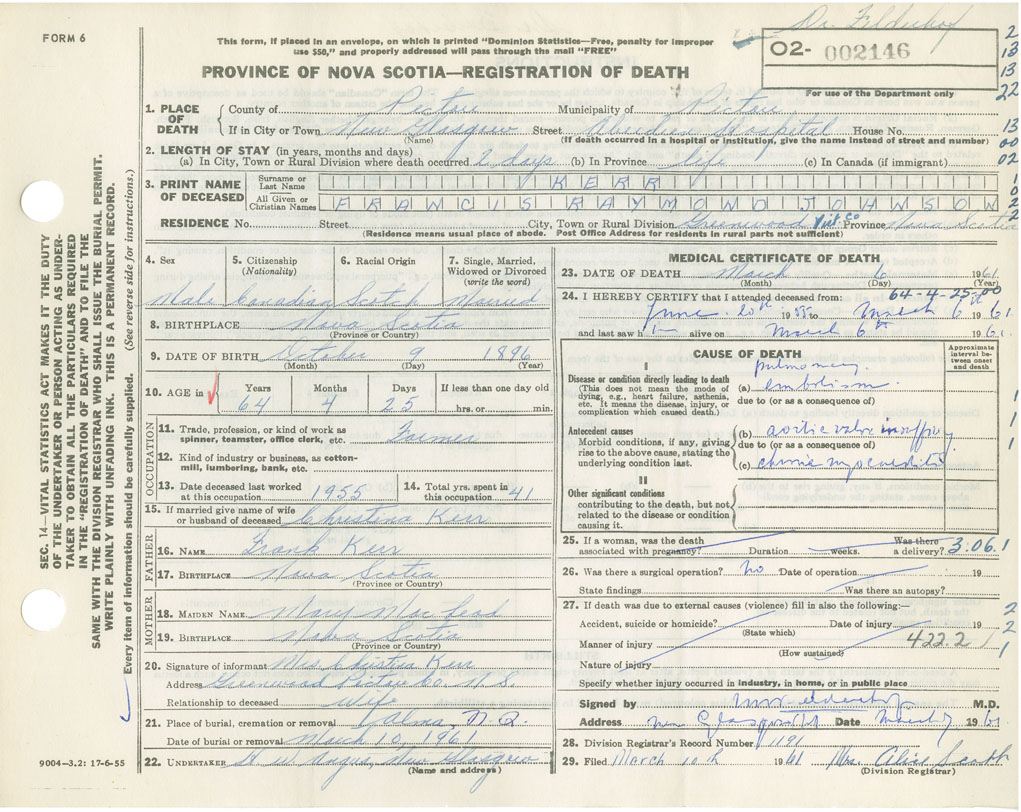 Dr. Felderhof
FORM 6
This form, if placed in an envelope, on which is printed "Dominion Statistics—Free, penalty for improper
use $50," and properly addressed will pass through the mail "FREE"
O2- 002146
For use of the Department only
PROVINCE OF NOVA SCOTIA—REGISTRATION OF DEATH
2
13
13
22
13
00
02
1
0
2
2
1. PLACE OF DEATH
County of Pictou Municipality of Pictou
If in City or Town New Glasgow Street Aberdeen Hospital House No.
(Name) (If death occurred in a hospital or institution, give the name instead of street and number)
2. LENGTH OF STAY (in years, months and days)
(a) In City, Town or Rural Division where death occurred 2 days (b) In Province life (c) In Canada (if immigrant)
3. PRINT NAME OF DECEASED
Surname or Last Name KERR
All Given or Christian Names FRANCIS RAYMOND JOHNSON
RESIDENCE No. Street City, Town or Rural Division Greenwood Pict Co Province Nova Scotia
(Residence means usual place of abode. Post Office Address for residents in rural parts not sufficient)
4. Sex
Male
5. Citizenship
(Nationality)
Canadian
6. Racial Origin
Scotch
7. Single, Married,
Widowed or Divorced
(write the word)
Married
8. BIRTHPLACE Nova Scotia
(Province or Country)
9. DATE OF BIRTH October 9 1896
(Month) (Day) (Year)
10. AGE in
Years Months Days If less than one day old
64 4 25 hrs. or min.
OCCUPATION
11. Trade, profession, or kind of work as
spinner, teamster, office clerk, etc. Farmer
12. Kind of industry or business, as cotton-
mill, lumbering, bank, etc.
13. Date deceased last worked
at this occupation 1955
14. Total yrs. spent in
this occupation 41
15. If married give name of wife
or husband of deceased Christina Kerr
FATHER
16. NAME Frank Kerr
17. BIRTHPLACE Nova Scotia
(Province or Country)
MOTHER
18. MAIDEN NAME Mary MacLeod
19. BIRTHPLACE Nova Scotia
(Province or Country)
20. Signature of informant Mrs Christina Kerr
Address Greenwood Pictou Co. N.S.
Relationship to deceased wife
21. Place of burial, cremation or removal Alma, N.S.
Date of burial or removal March 10, 1961
22. UNDERTAKER H. W. Angus, New Glasgow
(Name and address)
MEDICAL CERTIFICATE OF DEATH
23. DATE OF DEATH March 6 1961
(Month) (Day) (Year)
64-4-25-00
24. I HEREBY CERTIFY that I attended deceased from:
June 20th 1955 to March 6th 1961
and last saw h i— alive on March 6th 1961
CAUSE OF DEATH
Approximate
interval be-
tween onset
and death
I
Disease or condition directly leading to death
(This does not mean the mode of
dying, e.g., heart failure, asthenia,
etc. It means the disease, injury, or
complication which caused death.)
pulmonary
(a) embolism
due to (or as a consequence of)
Antecedent causes
Morbid conditions, if any, giving
rise to the above cause, stating the
underlying condition last.
(b) aortic valve insuffy
due to (or as a consequence of)
(c) chronic myocarditis
1
1
1
II
Other significant conditions
contributing to the death, but not
related to the disease or condition
causing it.
25. If a woman, was the death Was there
associated with pregnancy? Duration weeks. a delivery? 3.06.1
26. Was there a surgical operation? no Date of operation 19
State findings Was there an autopsy?
27. If death was due to external causes (violence) fill in also the following:—
Accident, suicide or homicide? Date of injury 19
(State which)
Manner of injury 422.2
(How sustained)
Nature of injury
2
2
1
Specify whether injury occurred in industry, in home, or in public place
Signed by M.D.
Address New Glasgow Date March 7 1961
28. Division Registrar's Record Number 1191
29. Filed March 10th 1961 Mrs. Alice Scott
(Division Registrar)
SEC. 14—VITAL STATISTICS ACT MAKES IT THE DUTY
OF THE UNDERTAKER OR PERSON ACTING AS UNDER-
TAKER TO OBTAIN ALL THE PARTICULARS REQUIRED
IN THE "REGISTRATION OF DEATH" AND TO FILE THE
SAME WITH THE DIVISION REGISTRAR WHO SHALL ISSUE THE BURIAL PERMIT.
WRITE PLAINLY WITH UNFADING INK. THIS IS A PERMANENT RECORD.
Every item of information should be carefully supplied. (See reverse side for instructions.)
9004—3.2: 17-6-55